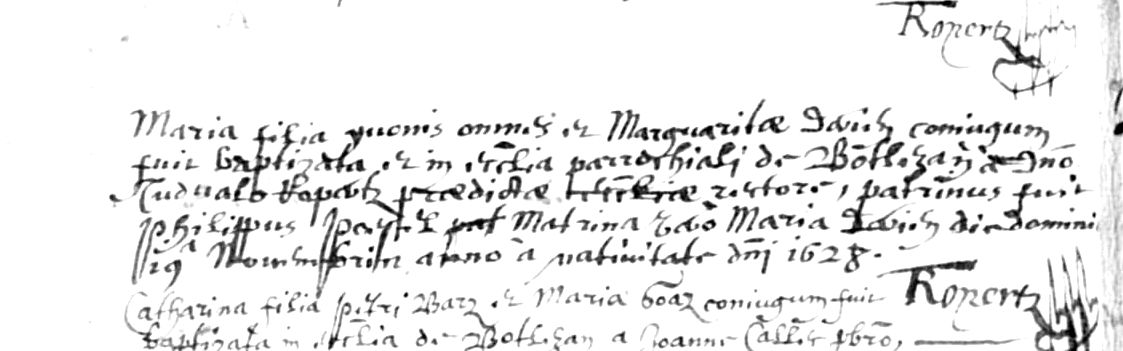 Ropertz
Maria filia yuonis omnes et Marguaritæ Dauid coniugum
fuit baptizata et in ecclia parrochiali de Botlezan a Dno
Tudualo Ropartz prædictæ rectore, patrinus fuit
Philippus matrina vero Maria Dauid die domini
19a Nouembris anno a natiuitate dni 1628.
Catharina filia petri Barz et Maria coniugum fuit Ropertz
baptizata in ecclia de Botlezan a Joanne Callec pbro,